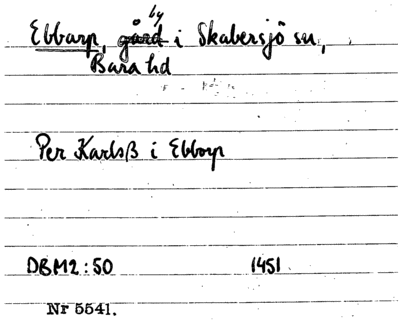 Ebbarp, by gård i Skabersjö sn,
Bara hd
Per Karlsß i Ebborp
DBM2:50 1451
Nr 5541.